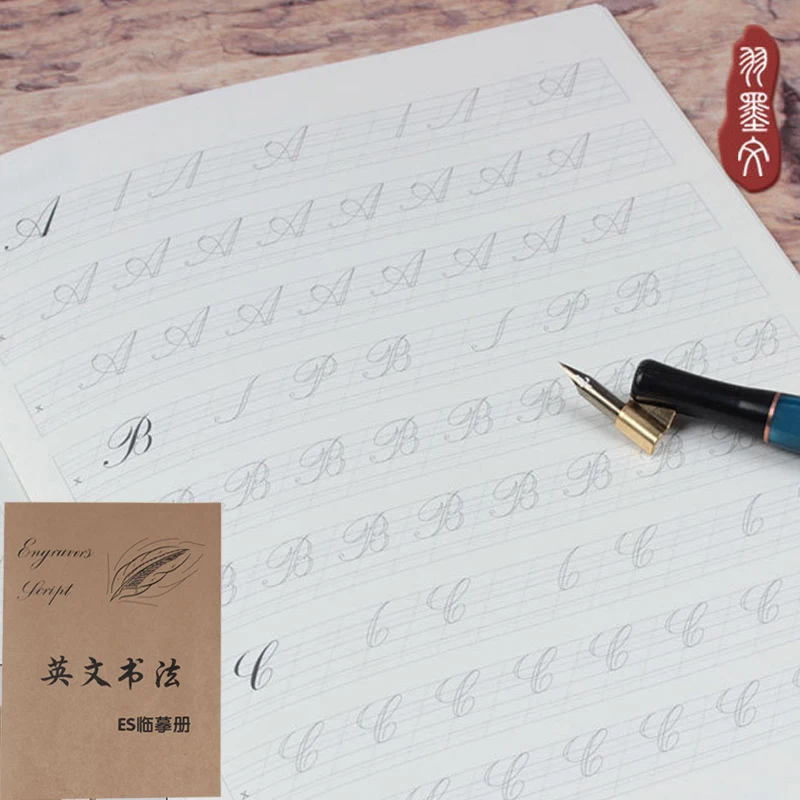 羽墨文
A A A
A A A A A A A A
A A A A A A A A
B B B
B B B B B B B B B
B B B B B B B
C C C
C C C C C C C
C C C C
Engravers
Script
英文书法
ES临摹册